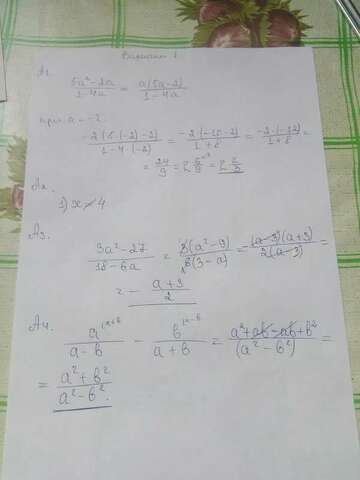 Вариант 1
А1.
5a² - 2a / 1 - 4a = a(5a - 2) / 1 - 4a
при a = -2
-2(5·(-2) - 2) / 1 - 4·(-2) = -2·(-10 - 2) / 1 + 8 = -2·(-12) / 1 + 8 =
= 24/9 = 2 6/9 = 2 2/3
А2.
1) x ≠ 4
А3.
3a² - 27 / 18 - 6a = 3(a² - 9) / 6(3 - a) = -(a - 3)(a + 3) / 2(a - 3) =
= - a + 3 / 2
А4.
a^(a+b) / a - b - b^(a-b) / a + b = a² + ab - ab + b² / (a² - b²) =
= a² + b² / a² - b².